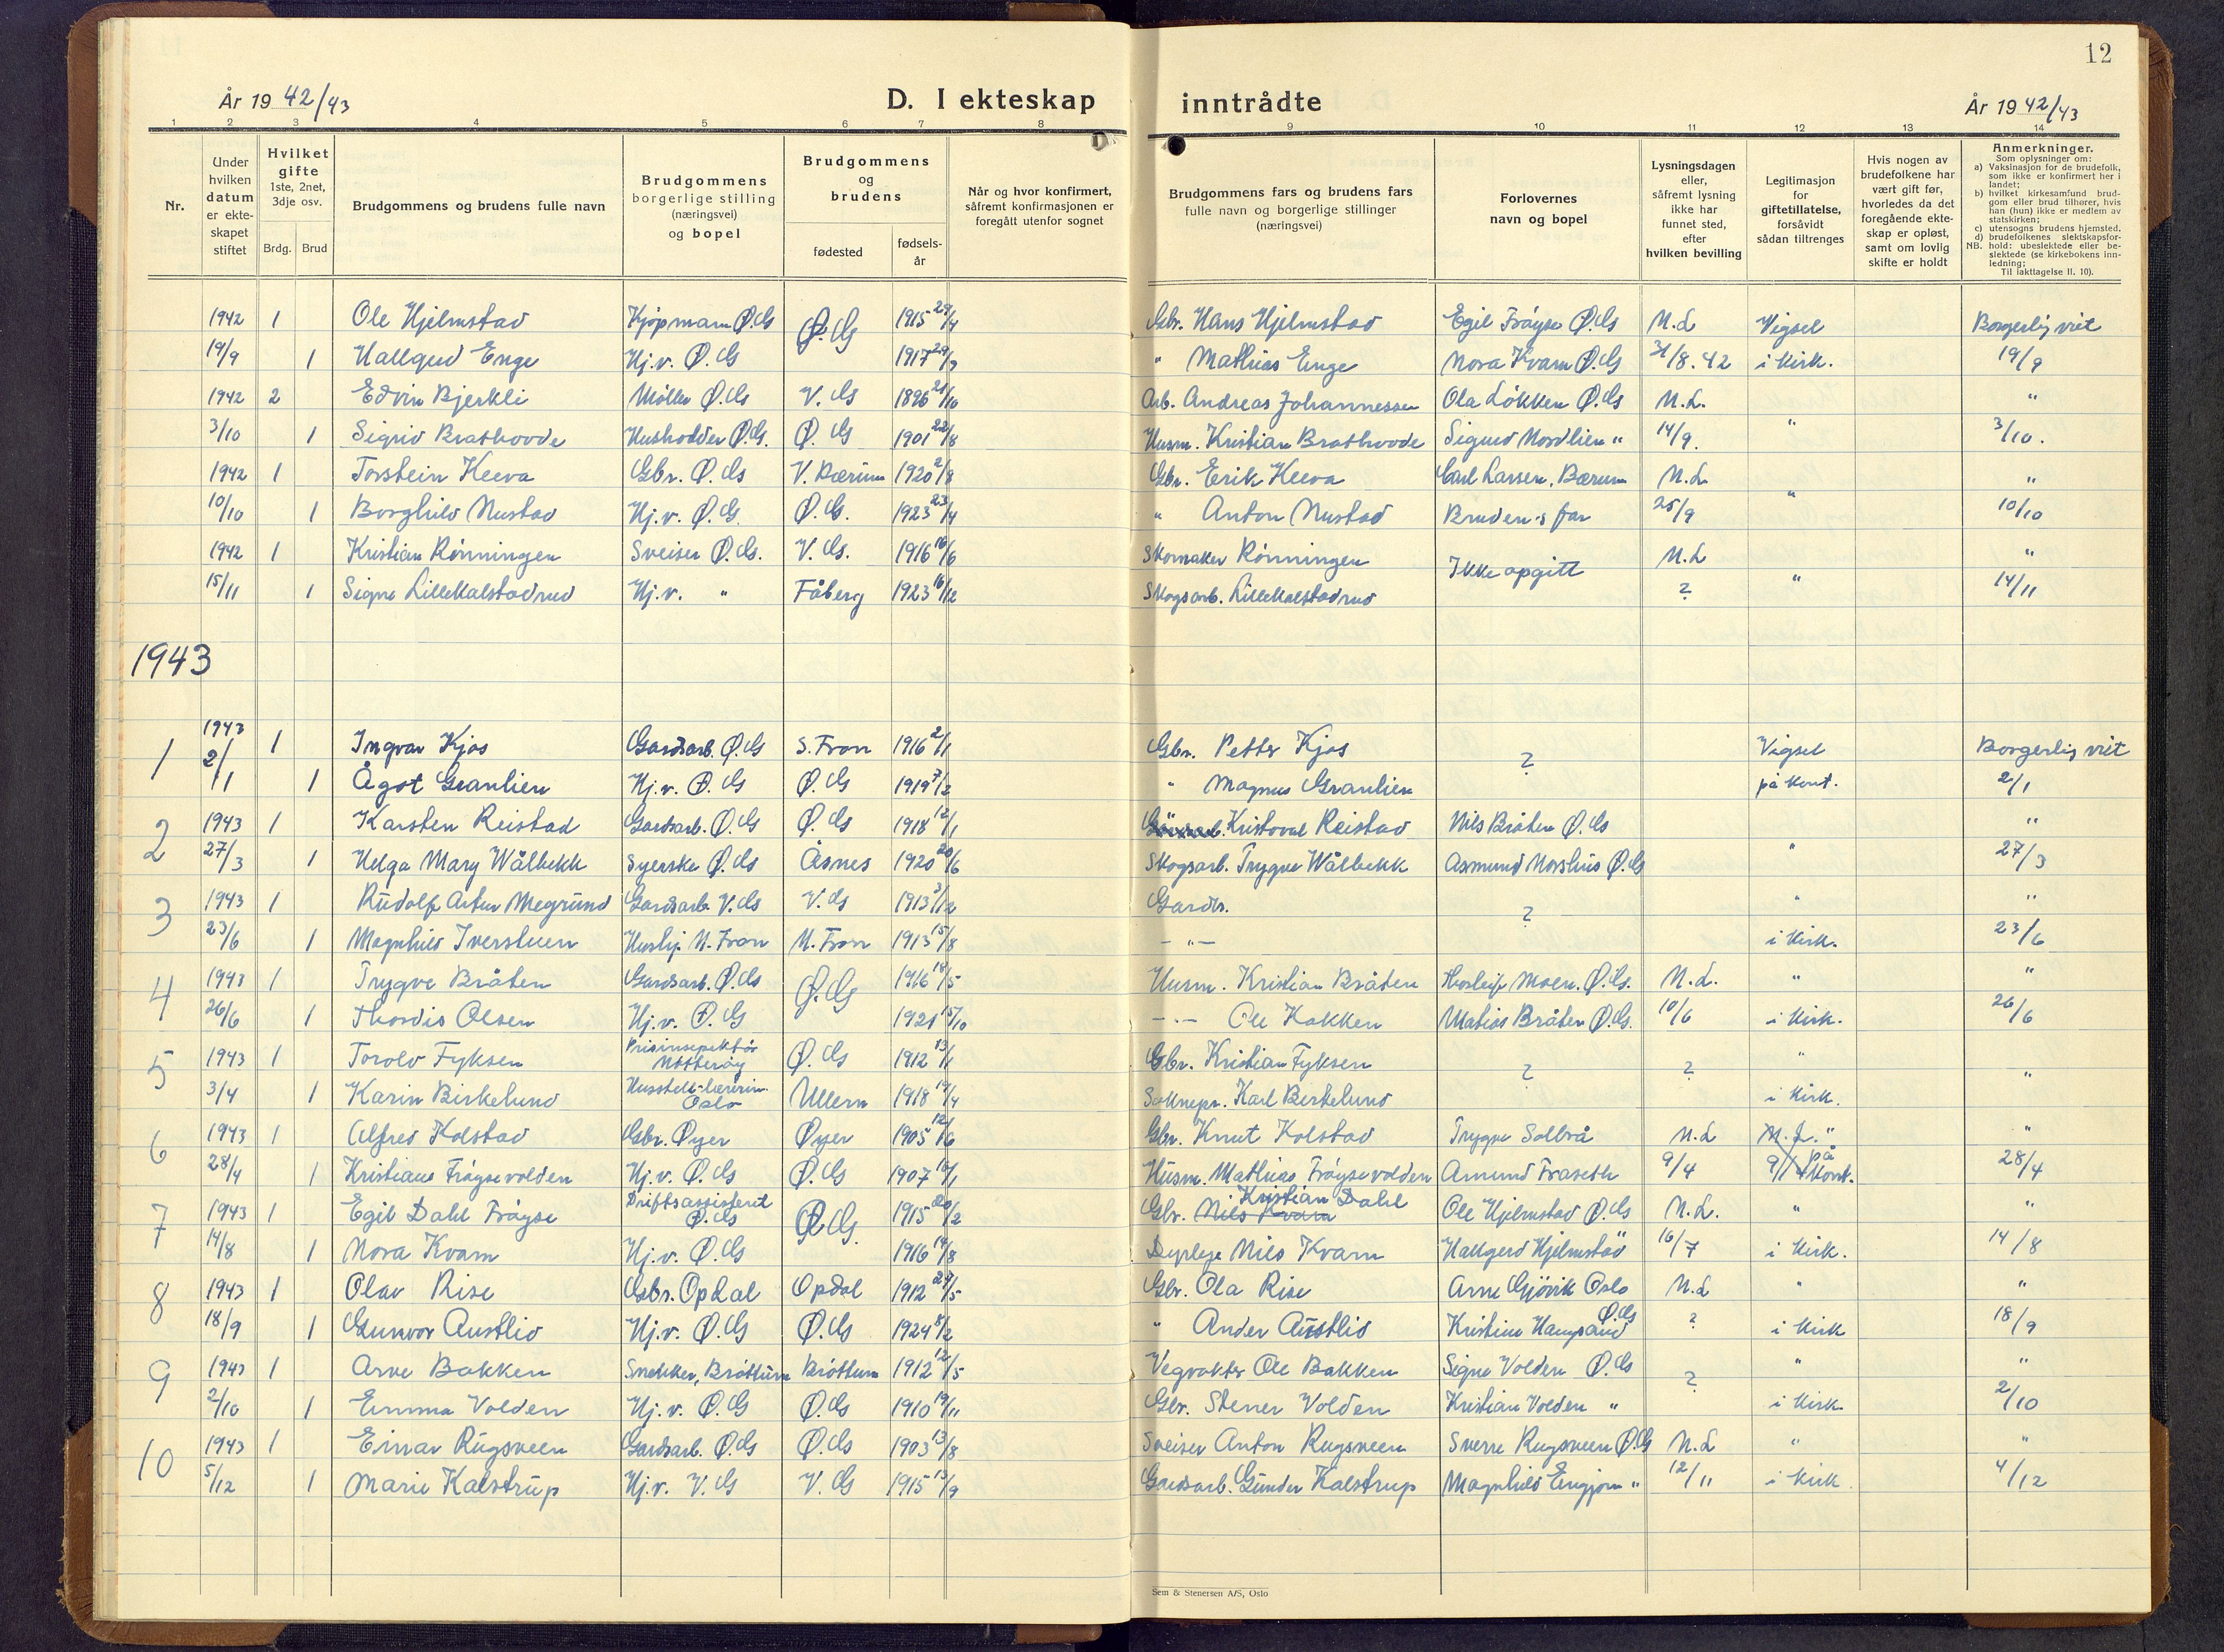 12
År 1942/43
D. I ekteskap inntrådte
År 1942/43
1 2 3 4 5 6 7 8 9 10 11 12 13 14
Nr.
Under hvilken datum er ekte-skapet stiftet
Hvilket gifte 1ste, 2net, 3dje osv.
Brdg. Brud
Brudgommens og brudens fulle navn
Brudgommens borgerlige stilling (næringsvei) og bopel
Brudgommens og brudens
fødested
fødsels-år
Når og hvor konfirmert, såfremt konfirmasjonen er foregått utenfor sognet
Brudgommens fars og brudens fars fulle navn og borgerlige stillinger (næringsvei)
Forlovernes navn og bopel
Lysningsdagen eller, såfremt lysning ikke har funnet sted, efter hvilken bevilling
Legitimasjon for giftetillatelse, forsåvidt sådan tiltrenges
Hvis nogen av brudefolkene har vært gift før, hvorledes da det foregående ekte-skap er opløst, samt om lovlig skifte er holdt
Anmerkninger.
Som oplysninger om:
a) Vaksinasjon for de brudefolk, som ikke er konfirmert her i landet;
b) hvilket kirkesamfund brud-gom eller brud tilhører, hvis han (hun) ikke er medlem av statskirken;
c) utensogns brudens hjemsted.
d) brudefolkenes slektskapsfor-hold: ubeslektede eller be-slektede (se kirkebokens inn-ledning;
NB. Til iakttagelse II. 10).
1942 1 Ole Hjelmstad Kjøpmann Ø.G Ø.G 1915 29/4 Gbr. Hans Hjelmstad Egil Frøyse Ø.G N.L Vigsel Borgerlig viet
19/9 1 Hallgerd Enge Hj.v. Ø.G 1917 29/9 " Mathias Enge Nora Kvam Ø.G 31/8.42 i Kirk. 19/9
1942 2 Edvin Bjerkli Møller Ø.G V.G 1896 21/10 Arb. Andreas Johannessen Ola Løkken Ø.G N.L. "
3/10 1 Sigrid Brathovde Husholder Ø.G. Ø.G 1901 22/8 Husm. Kristian Brathovde Sigurd Nordlien " 14/9. " 3/10.
1942 1 Torstein Keeva Gbr. Ø.G V. Bærum 1920 2/8 Gbr. Erik Keeva Carl Larsen, Bærum N.L "
10/10 1 Borghild Nustad Hj.v. Ø.G. Ø.G. 1923 23/4 " Anton Nustad Bruden's far 25/9 " 10/10
1942 1 Kristian Rønningen Sveiser Ø.G. V.G. 1916 16/6 Skomaker Rønningen Ikke opgitt N.L "
15/11 1 Signe Lillekalstadrud Hj.v. " Fåberg 1923 16/12 Skogsarb. Lillekalstadrud ? " 14/11
1943
1 1943 1 Ingvar Kjos Gardsarb. Ø.G S. Fron 1916 2/1 Gbr. Petter Kjos ? Vigsel Borgerlig viet
2/1 1 Ågot Granlien Hj.v. Ø.G Ø.G 1919 7/2 " Magnus Granlien på kont. 2/1
2 1943 1 Karsten Reistad Gardsarb. Ø.G Ø.G 1918 12/1 Kristoval Reistad Nils Bråten Ø.G "
27/3 1 Helga Mary Wålbekk Syerske Ø.G Åsnes 1920 20/6 Skogsarb. Trygve Wålbekk Asmund Morshus Ø.G " 27/3
3 1943 1 Rudolf Artur Megrund Gardsarb. V.G V.G 1913 3/12 Gardbr. ? " "
23/6 1 Magnhild Iverstuen Hushj. N. Fron N. Fron 1913 15/8 - " - i Kirk. 23/6
4 1943 1 Trygve Bråten Gardsarb. Ø.G Ø.G 1916 18/5 Husm. Kristian Bråten Thorleif Moen. Ø.G. N.L. " "
26/6 1 Thordis Olsen Hj.v. Ø.G 1921 15/10 - " - Ole Kakken Matias Bråten Ø.G. 10/6 i Kirk. 26/6
5 1943 1 Torolv Fyksen Prisinspektør Nøtterøy Ø.G 1912 13/1 Gbr. Kristian Fyksen ? ? "
3/4 1 Karin Birkelund Husstell-lærerin. Oslo Ullern 1918 19/4 Soknepr. Karl Birkelund i Kirk. "
6 1943 1 Alfred Kolstad Gbr. Øyer Øyer 1905 12/6 Gbr. Knut Kolstad Trygve Solbrå N.L N.L. " "
28/4 1 Kristiane Frøysevolden Hj.v. Ø.G Ø.G 1907 16/1 Husm. Mathias Frøysevolden Amund Fraseth 9/4 9/4 på kont. 28/4
7 1943 1 Egil Dahl Frøyse Driftsassistent Ø.G Ø.G. 1915 20/2 Gbr. Nils Kvam Kristian Dahl Ole Hjelmstad Ø.G N.L. " "
14/8 1 Nora Kvam Hj.v. Ø.G 1916 14/8 Nils Kvam Hallgerd Hjelmstad " 16/7 i Kirk. 14/8
8 1943 1 Olav Rise Gbr. Opdal Opdal 1912 29/5 Gbr. Ola Rise Arne Gjövik Oslo N.L " "
18/9 1 Gunvor Austlid Hj.v. Ø.G Ø.G 1924 8/2 " Ander Austlid Kristine Hampsand Ø.G ? i Kirk 18/9
9 1943 1 Arve Bakken Snekker, Brøttum Brøttum 1912 12/5 Vegvokter Ole Bakken Signe Volden Ø.G ? " "
2/10 1 Emma Volden Hj.v. Ø.G Ø.G 1910 19/11 Gbr. Stener Volden Kristian Volden " i Kirk. 2/10
10 1943 1 Einar Rugsveen Gardsarb. Ø.G Ø.G 1903 13/8 Sveiser Anton Rugsveen Sverre Rugsveen Ø.G N.L " "
5/12 1 Marie Kalstrup Hj.v. V.G V.G 1915 13/9 Gardsarb. Gunder Kalstrup Magnhild Engjom " 12/11 i Kirk. 4/12
Sem & Stenersen A/S, Oslo